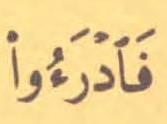 فَٱدْرَءُوا۟